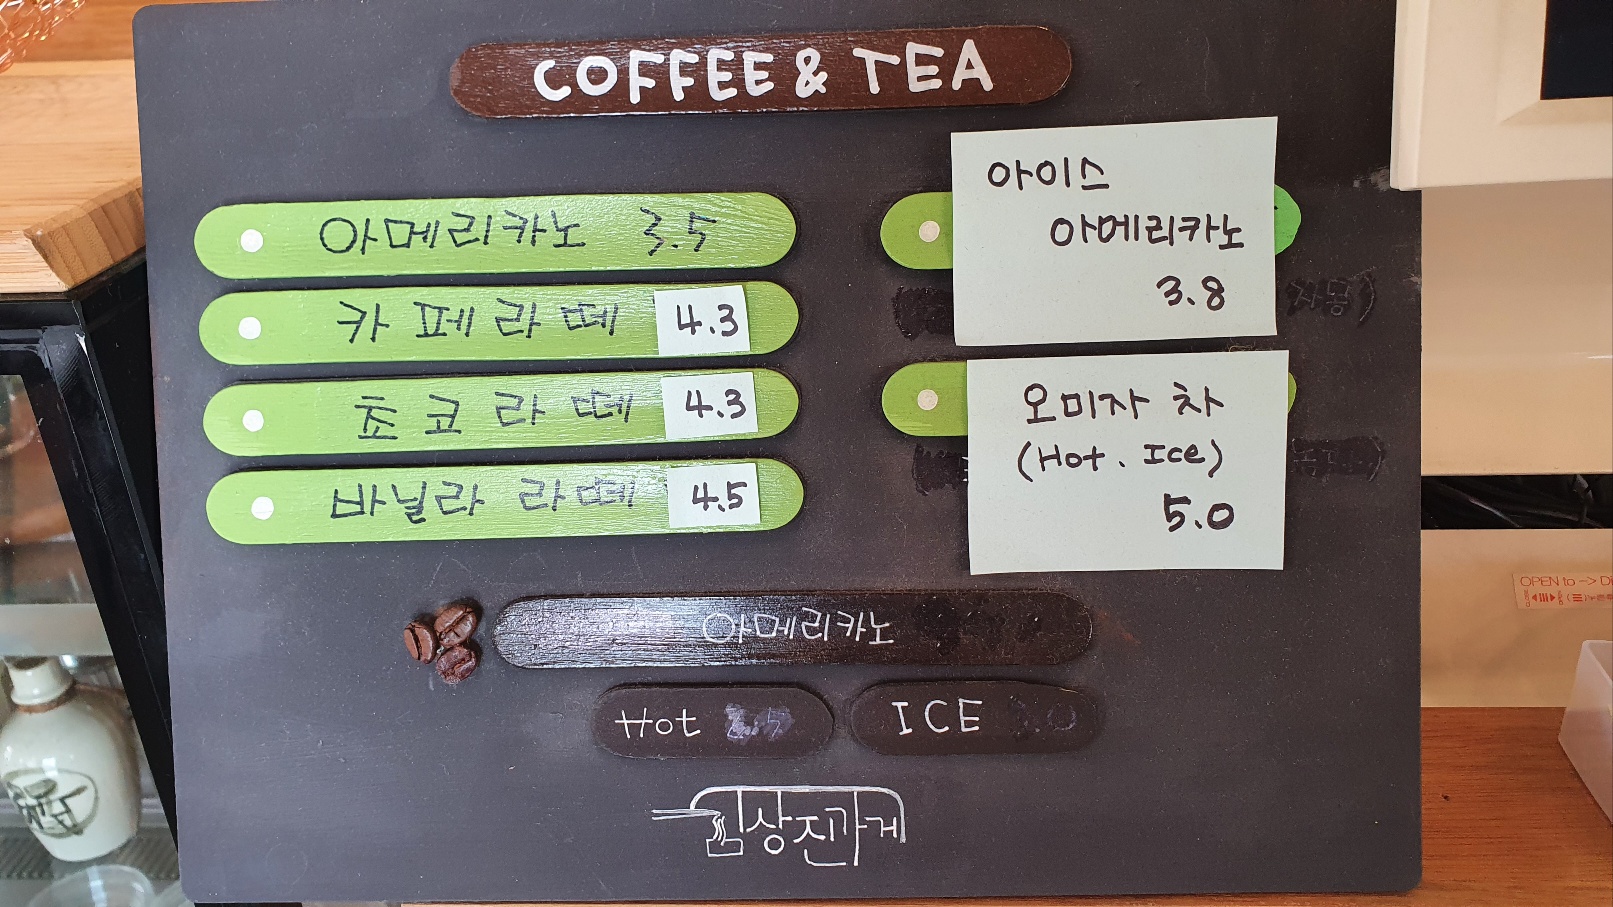 COFFEE & TEA
아메리카노 3.5
카페라떼 4.3
초코라떼 4.3
바닐라 라떼 4.5
아이스
아메리카노
3.8
자몽)
오미자 차
(Hot . Ice)
5.0
아메리카노
Hot
ICE
김상진가게
OPEN to -> D